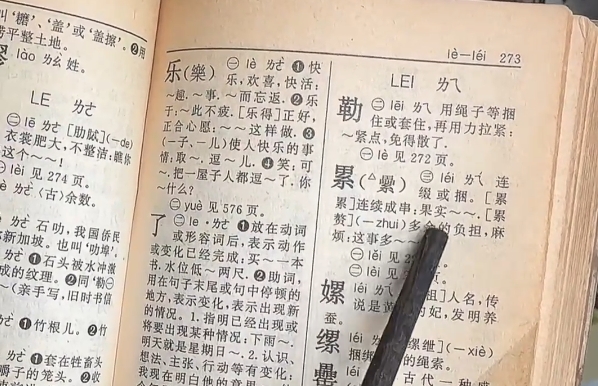 叫‘耱’、‘盖’或‘盖擦’. ❷用
平整土地.
lào ㄌㄠˋ 姓.
LE ㄌㄜ
lē ㄌㄜ [肋脦](－de)
衣裳肥大,不整洁: 瞧你
这个～～!
见 274 页.
lè ㄌㄜˋ 〈古〉余数.
石叻,我国侨民
新加坡. 也叫‘叻埠’.
❶石头被水冲激
成的纹理. ❷同‘勒㊀
(亲手写,旧时书信
❶竹根儿. ❷竹
❶套在牲畜头
子的笼头. ❷收
lè—léi 273
乐(樂) ㊀ lè ㄌㄜˋ ❶快
乐,欢喜,快活:
～趣. ～事. ～而忘返. ❷乐
于:～此不疲. [乐得]正好,
正合心愿:～～这样做. ❸
(－子、－儿)使人快乐的事
情:取～. 逗～儿. ❹笑:可
～. 把一屋子人都逗～了. 你
～什么?
㊁ yuè 见 576 页.
了 ㊀ le ·ㄌㄜ ❶放在动词
或形容词后,表示动作
或变化已经完成:买～一本
书. 水位低～两尺. ❷助词,
用在句子末尾或句中停顿的
地方,表示变化,表示出现新
的情况. 1.指明已经出现或
将要出现某种情况:下雨～.
明天就是星期日～. 2.认识、
想法、主张、行动等有变化:
我现在明白他的意思
LEI ㄌㄟ
勒 ㊁ lēi ㄌㄟ 用绳子等捆
住或套住,再用力拉紧:
～紧点,免得散了.
㊀ lè 见 272 页.
累(△纍) ㊂ léi ㄌㄟˊ 连
缀或捆. [累
累]连续成串:果实～～. [累
赘](－zhui)多余的负担,麻
烦:这事多～
㊀ lěi 见
㊁ lèi 见
嫘 léi ㄌㄟˊ [嫘祖]人名,传
说是黄 的妃,发明养
蚕.
缧 léi ㄌㄟˊ [缧绁](－xiè)
捆绑 的绳索.
古代一种